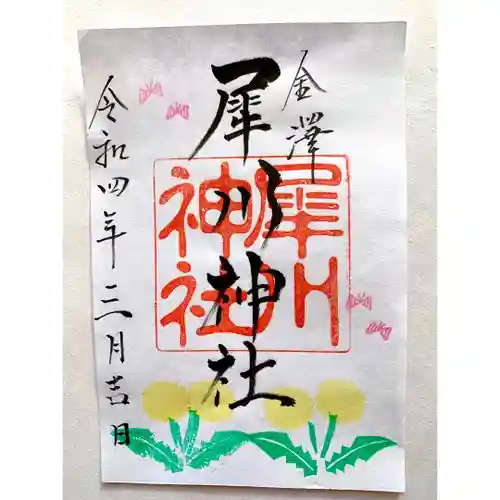 金澤
犀川神社
令和四年三月吉日
犀川
神社